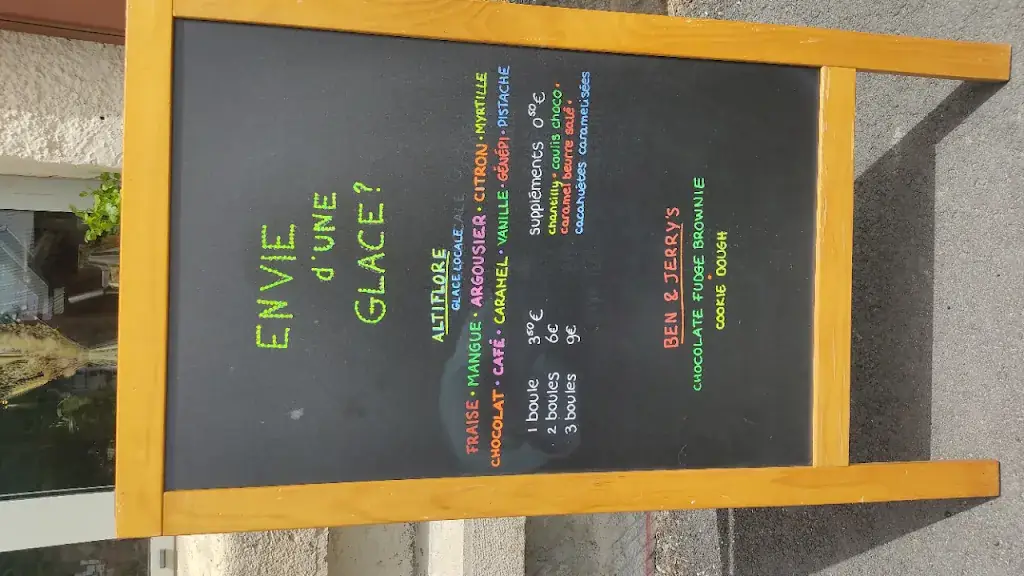 ENVIE
d'UNE
GLACE?
ALTIFLORE
GLACE LOCALE
FRAISE • MANGUE • ARGOUSIER • CITRON • MYRTILLE
CHOCOLAT • CAFÉ • CARAMEL • VANILLE • GÉNÉPI • PISTACHE
1 boule 3⁶⁰€
2 boules 6€
3 boules 9€
suppléments 0⁵⁰€
chantilly • coulis choco •
caramel beurre salé •
cacahuètes caramélisées
BEN & JERRY'S
CHOCOLATE FUDGE BROWNIE
•
COOKIE DOUGH